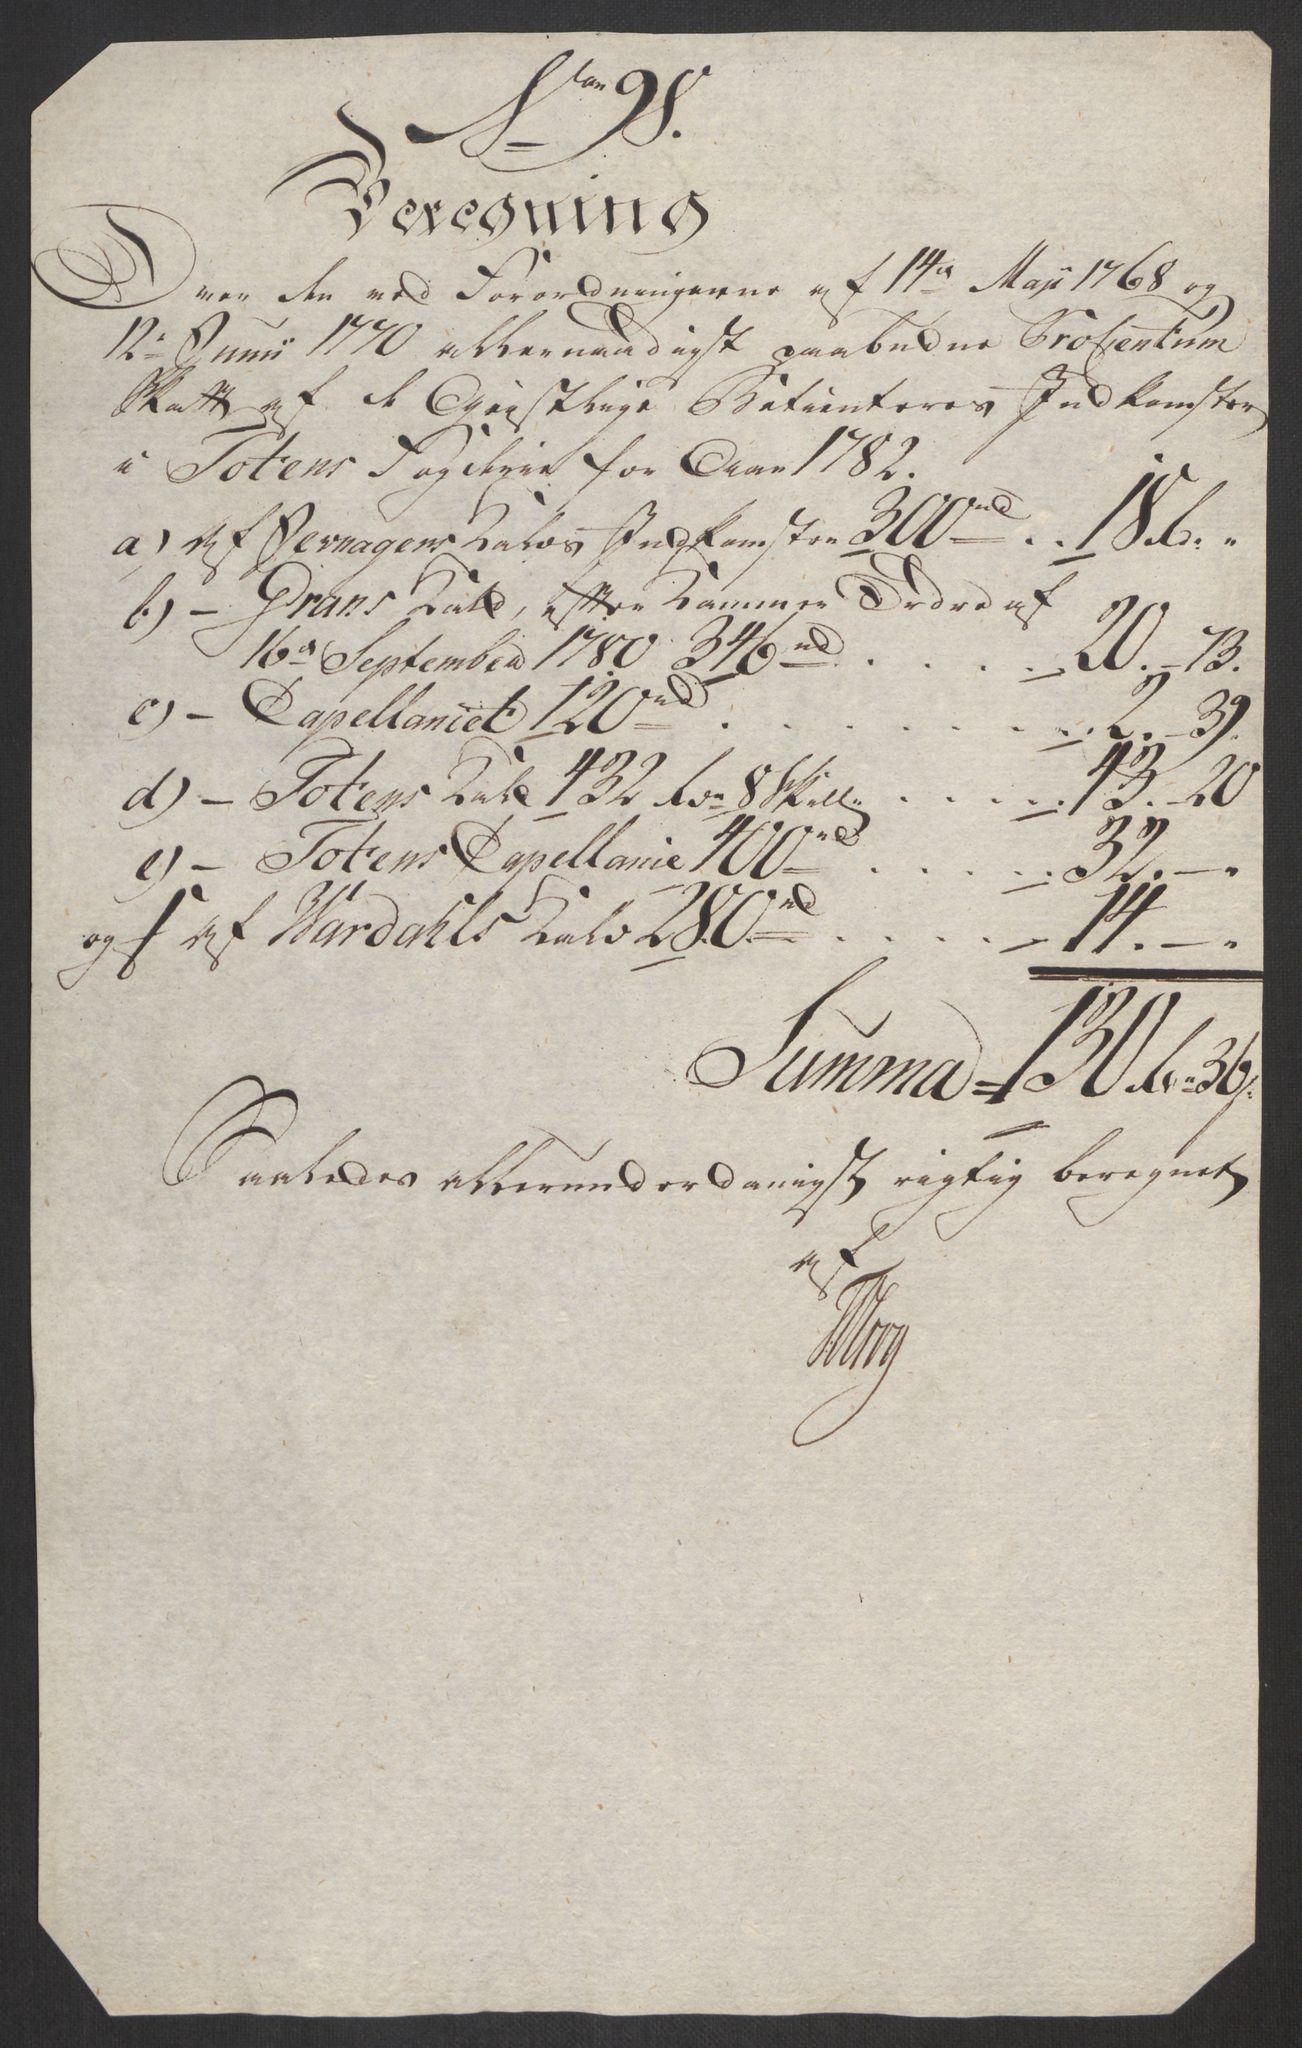 No 98.
Beregning
Over den ved Forordningerne af 14de Maji 1768 og
12te Junii 1770 allernaadigst paabudne Procentum
Skatt af de Geistlige Betienteres Indkomster
i Totens Fogderie for Aar 1782.
a) af Jevnagers Kalds Indkomster 300 rd .. 18 rd. "
b) — Grans Kald, efter Kammer Ordre af
16de September 1780 346 rd . . . . 20. — 73.
c) — Capellaniet 120 rd . . . . . . . 2. — 39.
d) — Totens Kald 432 rdr 8 Skill. . . . . . 43. — 20
e) — Totens Capellanie 400 rd . . . . . 32. — "
og f af Wardahls Kald 280 rd . . . . . 14. — "
Summa = 130 rdr 36 s.
Saaledes allerunderdanigst rigtig beregnet
af